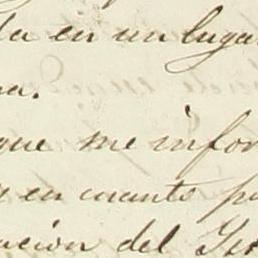 da en un lugar
na.
que me infor
y en cuanto po
ación del Ist